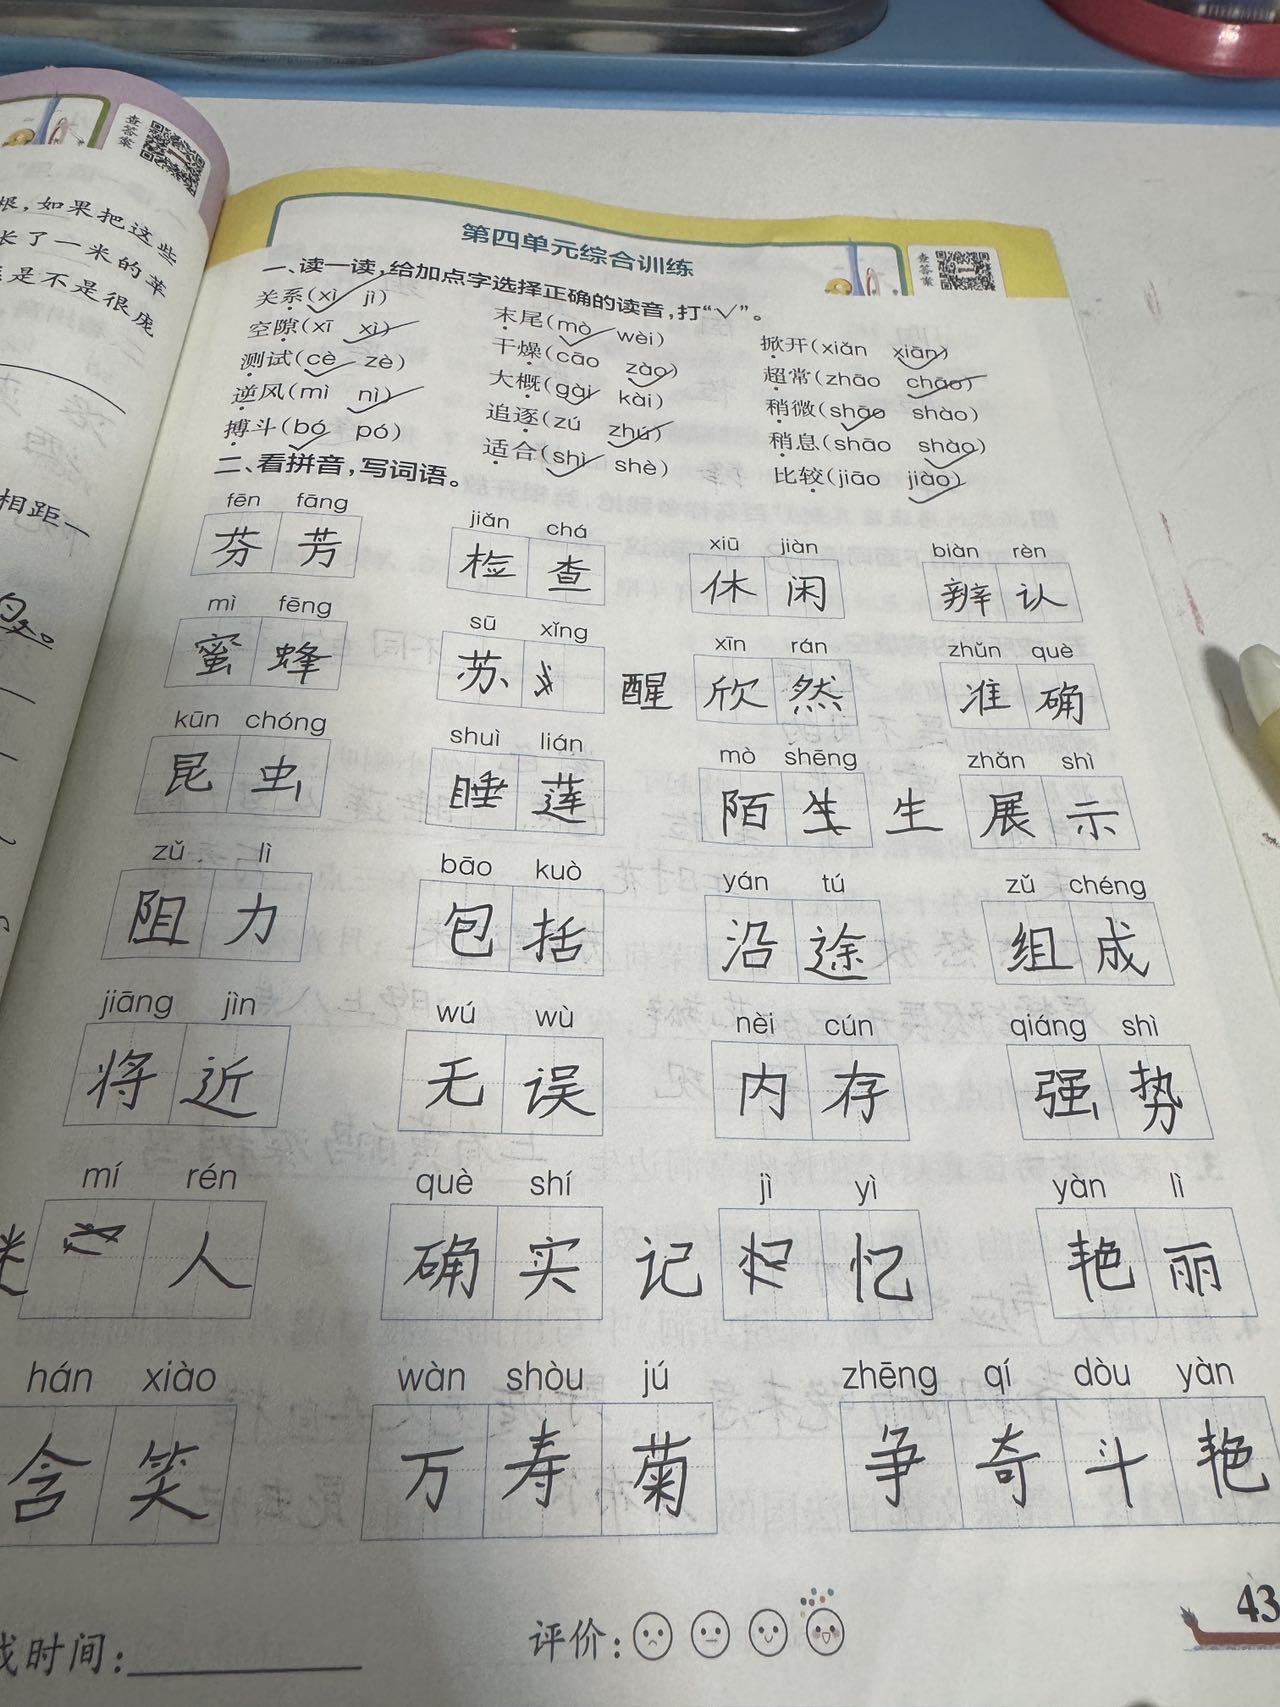 查答案
根，如果把这些
长了一米的苹
是不是很庞
相距一
查答案
第四单元综合训练
一、读一读，给加点字选择正确的读音，打“√”。
关系(xì✓ jì) 末尾(mò✓ wèi) 掀开(xiǎn xiān✓)
空隙(xī xì✓) 干燥(cāo zào✓) 超常(zhāo chāo✓)
测试(cè✓ zè) 大概(gài✓ kài) 稍微(shāo✓ shào)
逆风(mì nì✓) 追逐(zú zhú✓) 稍息(shāo shào✓)
搏斗(bó✓ pó) 适合(shì✓ shè) 比较(jiāo jiào✓)
二、看拼音，写词语。
fēn fāng jiǎn chá xiū jiàn biàn rèn
芬芳 检查 休闲 辨认
mì fēng sū xǐng xīn rán zhǔn què
蜜蜂 苏醒 欣然 准确
kūn chóng shuì lián mò shēng zhǎn shì
昆虫 睡莲 陌生 生 展示
zǔ lì bāo kuò yán tú zǔ chéng
阻力 包括 沿途 组成
jiāng jìn wú wù nèi cún qiáng shì
将近 无误 内存 强势
mí rén què shí jì yì yàn lì
迷人 确实 记忆 艳丽
hán xiào wàn shòu jú zhēng qí dòu yàn
含笑 万寿菊 争奇斗艳
时间：
评价：
43